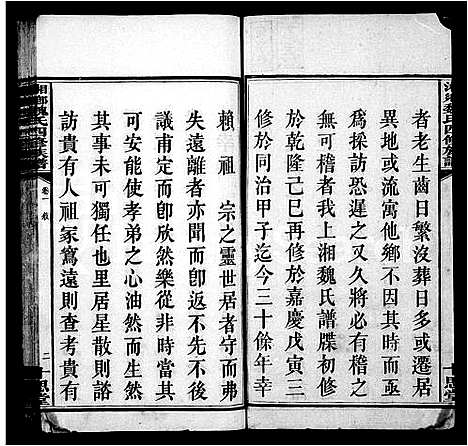 者老生齒日繁沒葬日多或遷居
異地或流寓他鄉不有時而亟
爲採訪恐遲之又久將必有稽之
無可稽者我上湘魏氏譜牒初修
於乾隆己巳再修於嘉慶戊寅三
修於同治甲子迄今三十餘年幸
賴祖宗之靈世居者守而弗
失遠離者亦聞而卽返久不後
議甫定而卽欣然樂從非時當其
可安能使孝弟之心油然而生然
其事未可獨任也里居星散則諮
訪貴有人祖冡寫遠則查考貴有
湘鄉魏氏四修族譜
卷一 敘
二